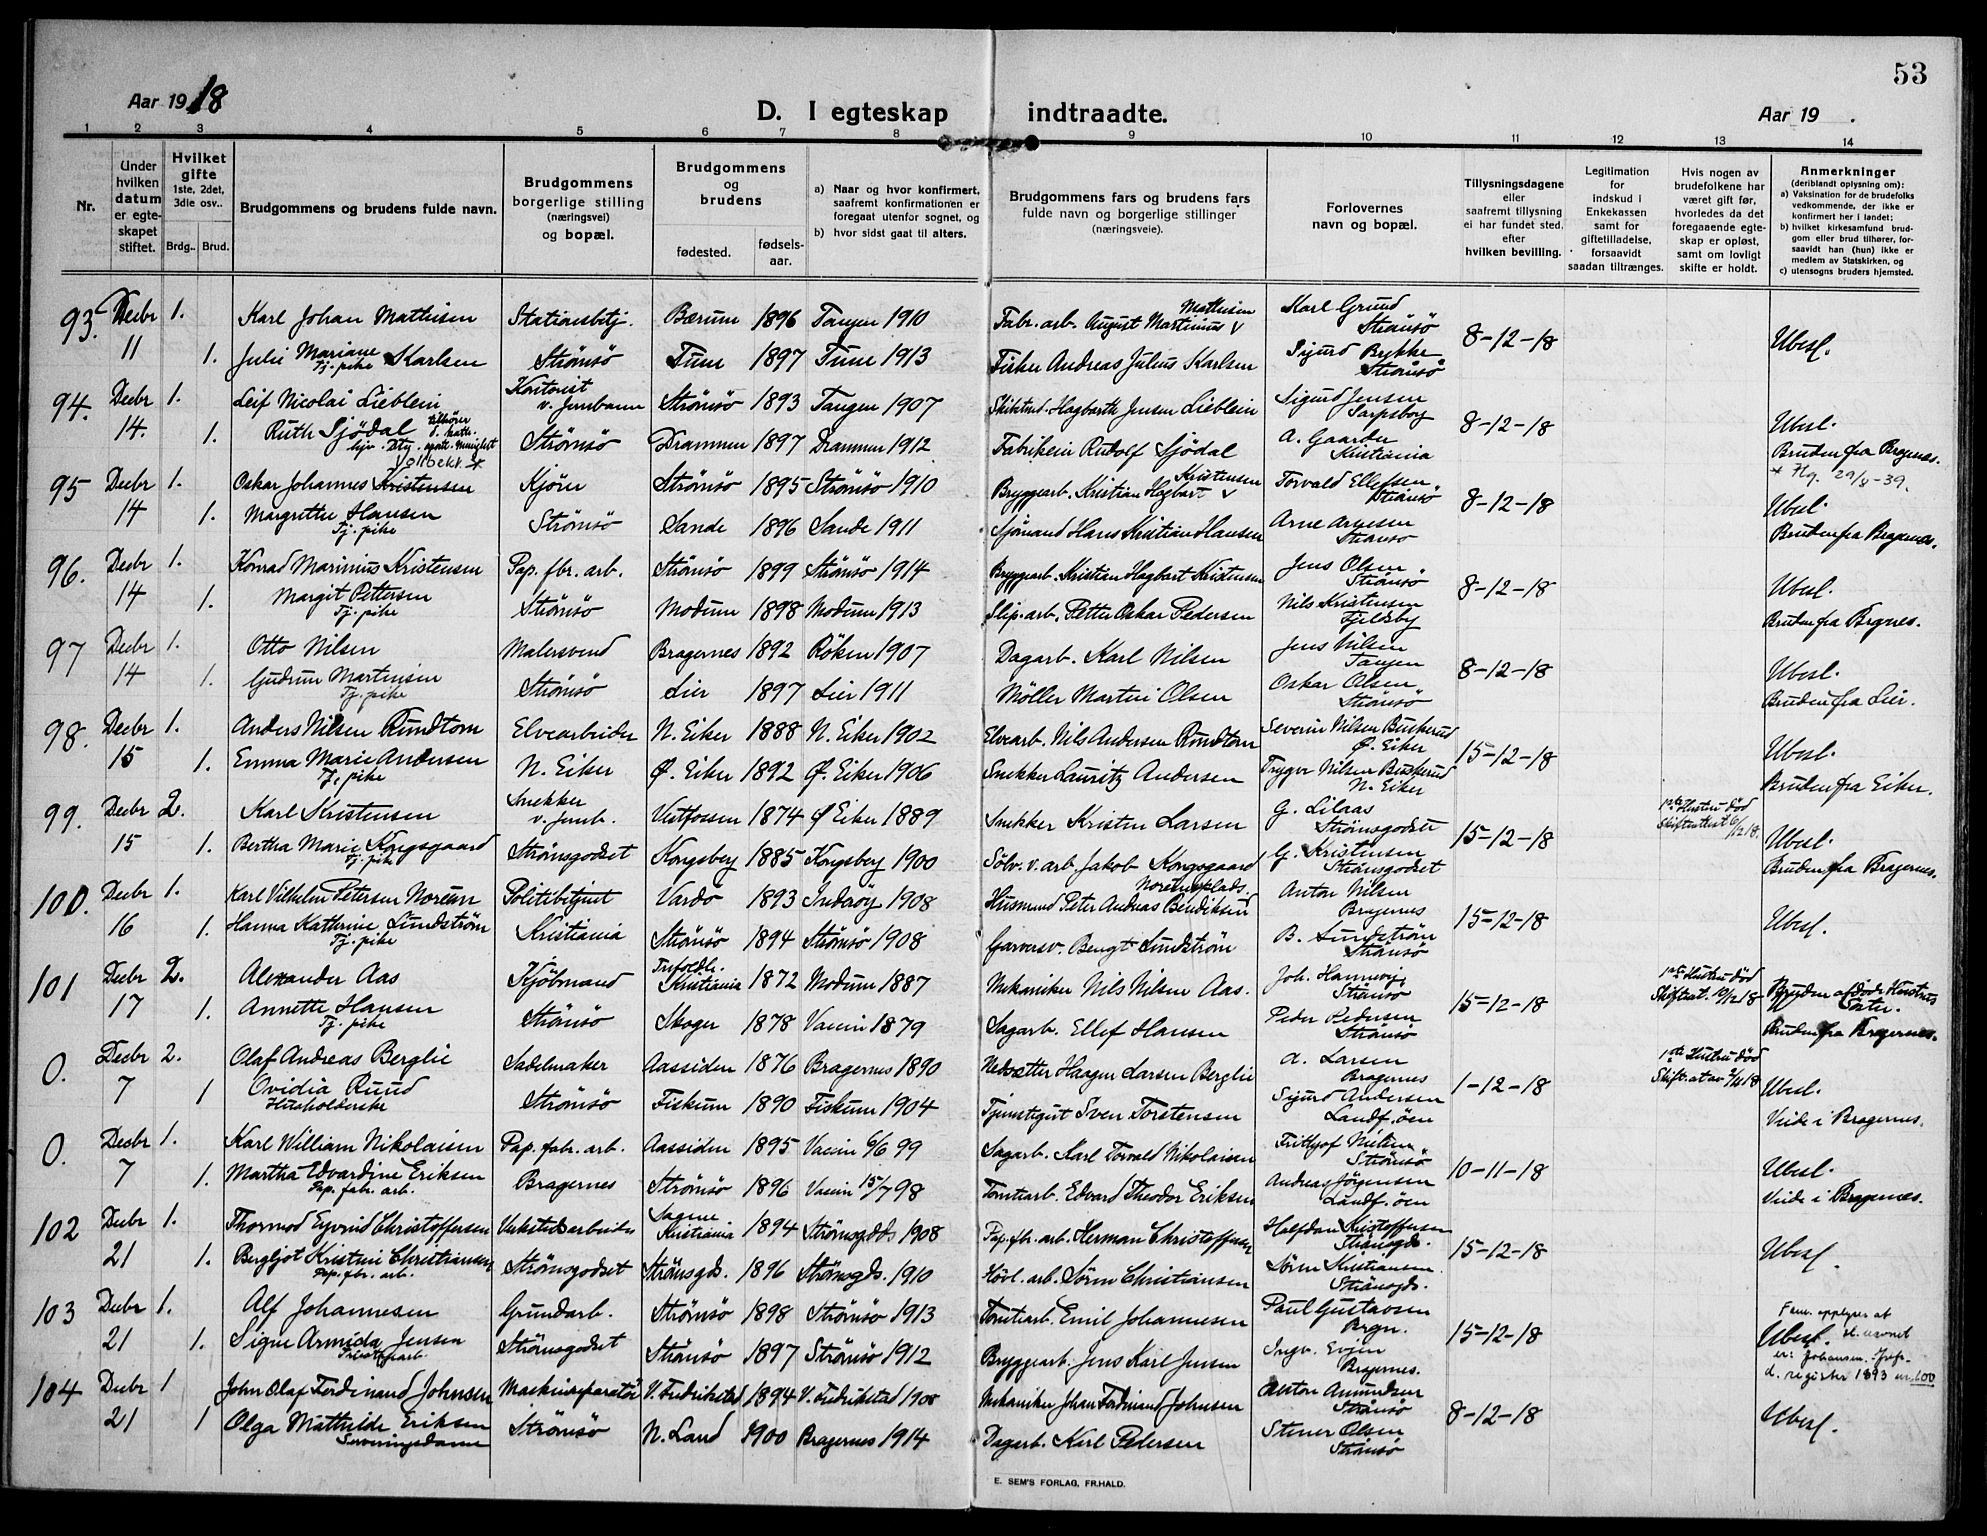 53
Aar 1918
D. I egteskap indtraadte.
Aar 19 .
1 2 3 4 5 6 7 8 9 10 11 12 13 14
Nr.
Under hvilken datum er egteskapet stiftet.
Hvilket gifte 1ste, 2det, 3die osv..
Brdg.. Brud.
Brudgommens og brudens fulde navn.
Brudgommens borgerlige stilling (næringsvei) og bopæl.
Brudgommens og brudens
fødested. fødsels-aar.
a) Naar og hvor konfirmert, saafremt konfirmationen er foregaat utenfor sognet, og
b) hvor sidst gaat til alters.
Brudgommens fars og brudens fars fulde navn og borgerlige stillinger (næringsveie).
Forlovernes navn og bopæl.
Tillysningsdagene eller saafremt tillysning ei har fundet sted, efter hvilken bevilling.
Legitimation for indskud i Enkekassen samt for giftetilladelse, forsaavidt saadan tiltrænges.
Hvis nogen av brudefolkene har været gift før, hvorledes da det foregaaende egteskap er opløst, samt om lovligt skifte er holdt.
Anmerkninger (deriblandt oplysning om):
a) Vaksination for de brudefolks vedkommende, der ikke er konfirmert her i landet;
b) hvilket kirkesamfund brudgom eller brud tilhører, forsaavidt han (hun) ikke er medlem av Statskirken, og
c) utensogns bruders hjemsted.
93. Decbr 1. Karl Johan Mathisen Stationsbetj. Bærum 1896 Tangen 1910 Fabr. arb. August Martinius Mathisen Karl Grund Strømsö 8-12-18 Ubesl.
11 1. Julie Mariane Karlsen Tj. pike Strømsö Tune 1897 Tune 1913 Fisker Andreas Julius Karlsen Sigurd Bykke Strømsö
94. Decbr 1. Leif Nicolai Lieblein Kontorist v. Jernbanen Strømsö 1893 Tangen 1907 Hagbarth Jensen Lieblein Sigurd Jensen Sarpsborg 8-12-18 Ubesl.
14. 1. Ruth Sjödal Strømsö Drammen 1897 Drammen 1912 Fabrikeier Rudolf Sjödal A. Gaarder Kristiania Bruden fra Bragernes.
95 Decbr 1. Oskar Johannes Kristensen Kjörer Strömsö 1895 Strömsö 1910 Bryggearb. Kristian Hagbart Kristensen Torvald Ellefsen Strömsö 8-12-18 Ubesl.
14 1. Margrethe Hansen Tj. pike Strömsö Sande 1896 Sande 1911 Sjömand Hans Kristian Hansen Arne Arnesen Strömsö Bruden fra Bragernes.
96. Decbr 1. Konrad Marinius Kristensen Pap. fbr. arb. Strömsö 1899 Strömsö 1914 Bryggearb. Kristian Hagbart Kristensen Jens Olsen Strömsö 8-12-18 Ubesl.
14 1. Margit Pettersen Tj. pike Strömsö Modum 1898 Modum 1913 Slip. arb. Petter Oskar Pedersen Nils Kristensen Fjeldsby Bruden fra Brgnes.
97 Decbr 1. Otto Nilsen Malersvend Bragernes 1892 Röken 1907 Dagarb. Karl Nilsen Jens Nilsen Tangen 8-12-18 Ubesl.
14 1. Gudrun Martinsen Tj. pike Strömsö Lier 1897 Lier 1911 Möller Martin Olsen Oskar Olsen Strömsö Bruden fra Lier.
98. Decbr 1. Anders Nilsen Rundtom Elvearbeider N. Eiker 1888 N. Eiker 1902 Elvearb. Nils Andersen Rundtom Severin Nilsen Buskerud Ø. Eiker 15-12-18 Ubesl.
15 1. Emma Marie Andersen Tj. pike N. Eiker Ø. Eiker 1892 Ø. Eiker 1906 Snekker Lauritz Andersen Trygve Nilsen Buskerud N. Eiker Bruden fra Eiker.
99. Decbr 2. Karl Kristensen Snekker v. Jernb. Vestfossen 1874 Ø Eiker 1889 Snekker Kristen Larsen G. Lilaas Strömsgodset 15-12-18 1ste Hustru död Skifteattest 6/12 18. Ubesl.
15 1. Bertha Marie Kongsgaard Tj. pike Strömsgodset Kongsberg 1885 Kongsberg 1900 Sölv. v. arb. Jakob Kongsgaard G. Kristensen Strömsgodset Bruden fra Bragernes.
100. Decbr 1. Karl Vilhelm Petersen Noreum Politibetjent Vardö 1893 Inderöy 1908 Husmand Peter Andreas Bendiksen Anton Nilsen Bragernes 15-12-18 Ubesl.
16 1. Hanna Kathrine Lundström Tj. pike Kristiania Strömsö 1894 Strömsö 1908 Garversv. Bengt Lundström B. Lundström Strömsö
101 Decbr 2. Alexander Aas Kjöbmand Kristiania 1872 Modum 1887 Mekaniker Nils Nilsen Aas. Joh. Hannevig Strömsö 15-12-18 1ste Hustru död Skifteat. 10/12 18 Bruden afdöde Hustrus Söster.
17 1. Annette Hansen Tj. pike Strömsö Skoger 1878 Vaccin 1879 Sagarb. Ellef Hansen Peder Pedersen Strömsö Bruden fra Bragernes.
0. Decbr 2. Olaf Andreas Berglie Sadelmaker Aassiden 1876 Bragernes 1890 Haagen Larsen Berglie A. Larsen Bragernes 1-12-18 1ste Hustru död Ubesl.
7 1 Ovidia Ruud Husholderske Strömsö Fiskum 1890 Fiskum 1904 Tjenstegut Sven Torstensen Sigurd Andersen Landf. öen Viede i Bragernes.
0. Decbr 1. Karl William Nikolaisen Pap. fabr. arb. Aassiden 1895 Vaccin 6/6 99 Sagarb. Karl Torvald Nikolaisen Frithjof Nielsen Strömsö 10-11-18 Ubesl.
7 1. Martha Edvardine Eriksen Pap. fabr. arb. Bragernes Strömsö 1896 Vaccin 15/7 98 Tomtearb. Edvard Theodor Eriksen Andreas Jörgensen Landf. öen Viede i Bragernes.
102 Decbr 1. Thormod Eyvind Christoffersen Verkstedsarbeider Sagene Kristiania 1894 Strömsgds 1908 Pap. fbr. arb. Herman Christoffersen Halfdan Kristoffersen Strömsgds. 15-12-18 Ubesl.
21 1. Bergljot Kristine Christiansen Pap. fbr. arb. Strömsgodset Strömsgds. 1896 Strömsgds. 1910 Hövl. arb. Sörn Christiansen Sörn Kristiansen Strömsgds.
103 Decbr 1. Alf Johannesen Grundarb. Strömsö 1898 Strömsö 1913 Tomtearb. Emil Johannesen Paul Gustavsen Brgn. 15-12-18 Ubesl.
21 1. Signe Armida Jensen Strömsgodset Strömsö 1897 Strömsö 1912 Bryggearb. Jens Karl Jensen Ingv. Evjen Bragernes. er: Johansen. Jvfr. d. register 1893 nr. 100
104 Decbr 1 John Olaf Ferdinand Johnsen Maskinreparatör V. Fredrikstad 1894 V. Fredrikstad 1908 Mekaniker Johan Ferdinand Johnsen Anton Amundsen Strömsö 8-12-18 Ubesl.
21 1 Olga Mathilde Eriksen Serveringsdame Strömsö N. Land 1900 Bragernes 1914 Dagarb. Karl Pedersen Stener Olsen Strömsö
E. SEM'S FORLAG, FR.HALD.